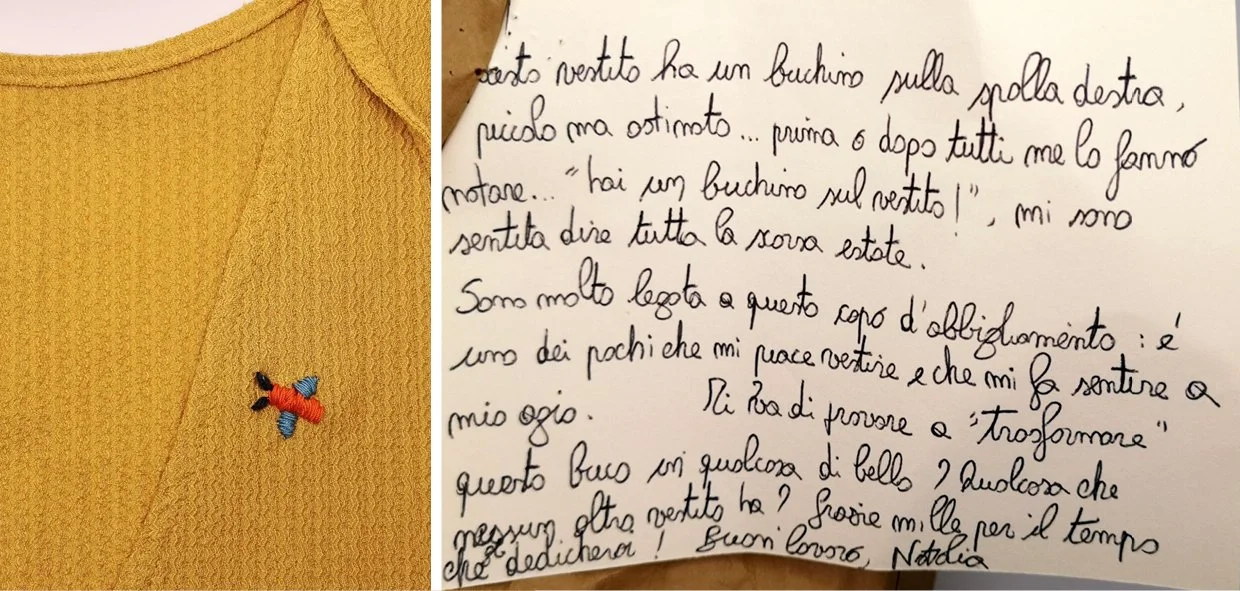 questo vestito ha un buchino sulla spalla destra,
piccolo ma ostinato... prima o dopo tutti me lo fanno
notare... "hai un buchino sul vestito!", mi sono
sentita dire tutta la scorsa estate.
Sono molto legata a questo capo d'abbigliamento: é
uno dei pochi che mi piace vestire e che mi fa sentire a
mio agio. Ti va di provare a "trasformare"
questo buco in qualcosa di bello? Qualcosa che
nessun altro vestito ha? Grazie mille per il tempo
che dedicherai! Buon lavoro, Natalia